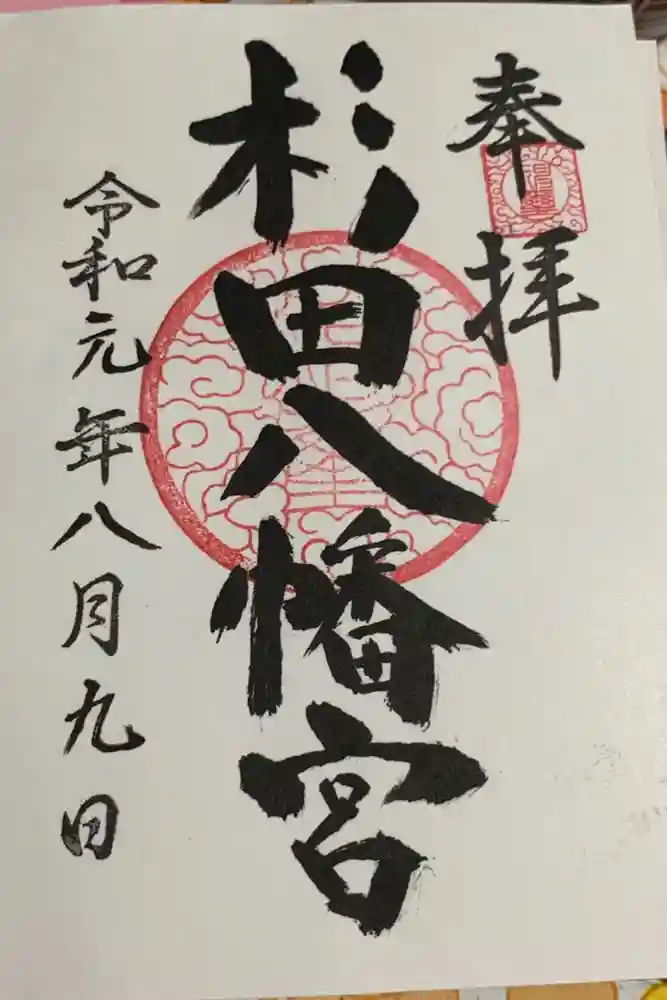 奉拝
杉田八幡宮
令和元年八月九日